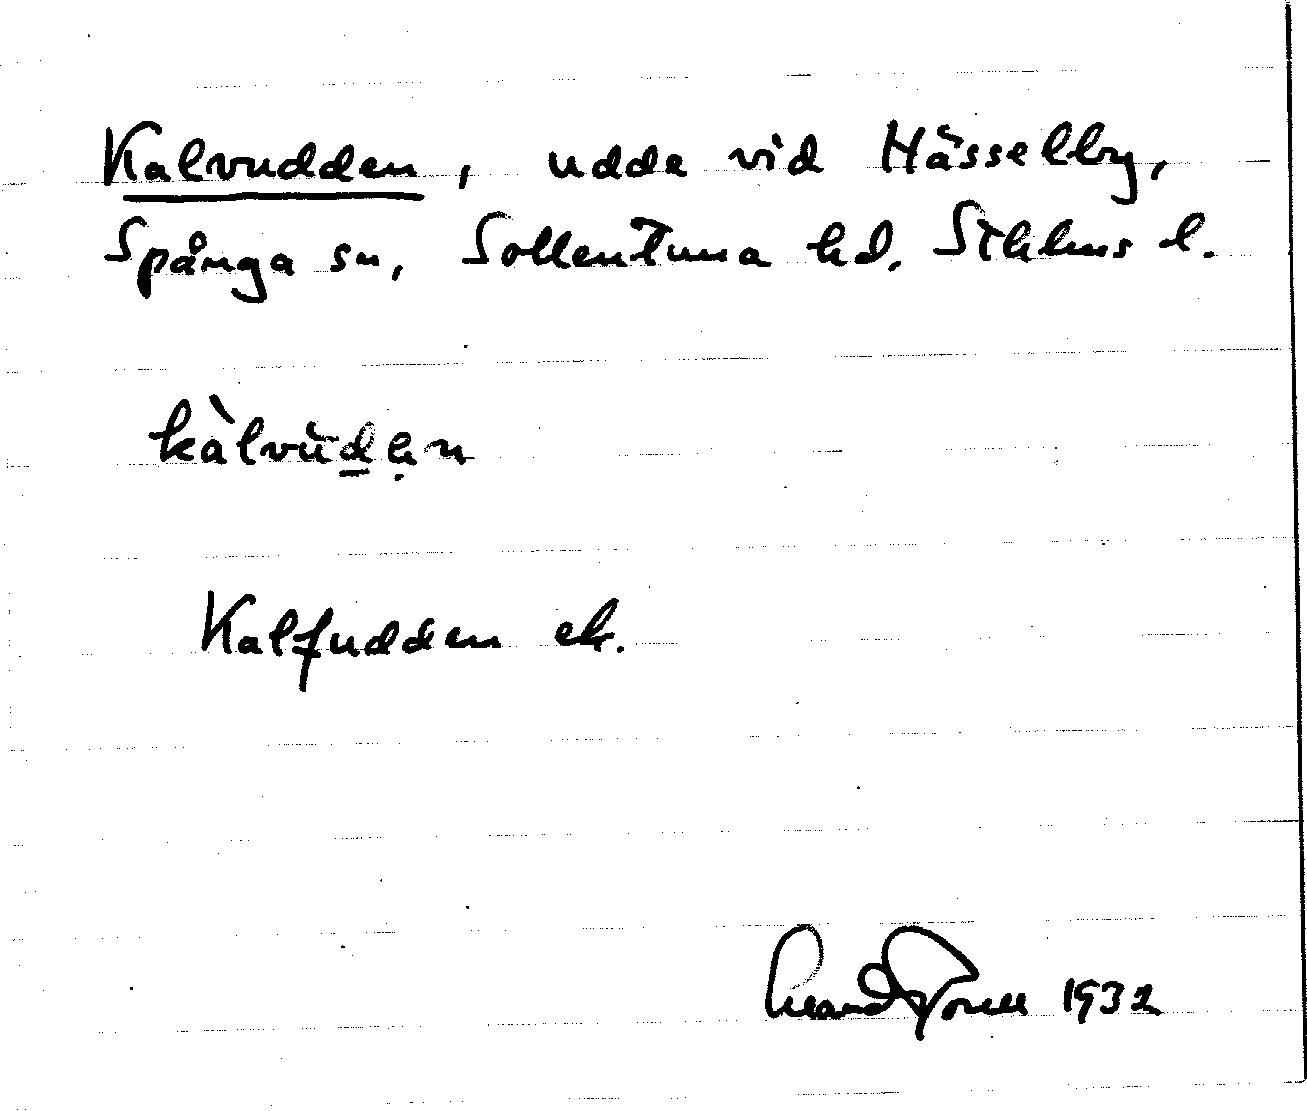 Kalvudden, udde vid Hässelby,
Spånga sn, Sollentuna hd. Sthlms l.
kàlvùdẹn
Kalfudden ek.
1932